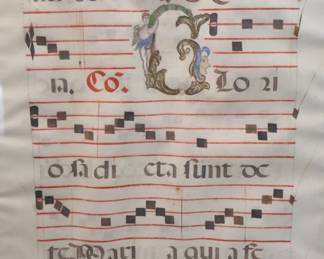 ia. Co. G Lo ri
o sa di cta sunt de
te Mari a qui a fe